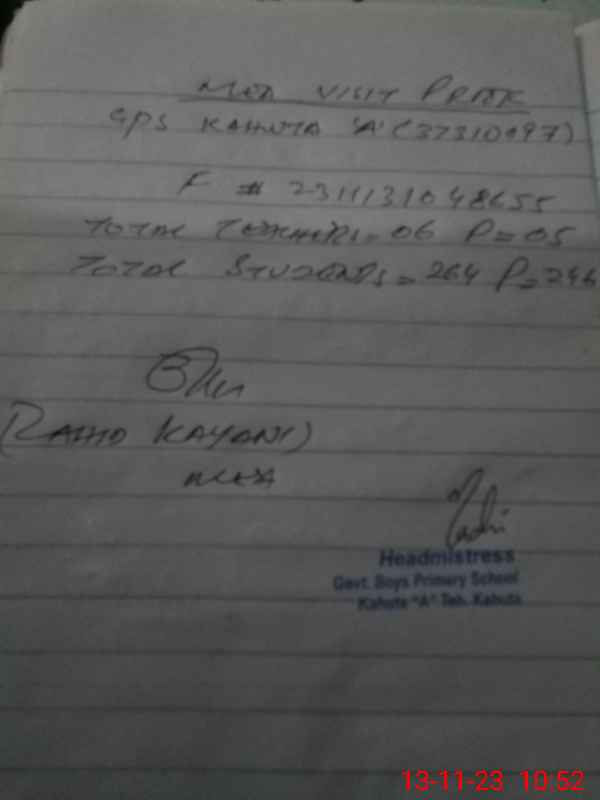 MEA VISIT PROOF
GPS KAHUTA 'A' (37310197)
F # 2311131048655
TOTAL TEACHERS = 06 P = 05
TOTAL STUDENTS = 264 P = 246
(ZAHID KAYANI)
MEA
Headmistress
Govt. Boys Primary School
Kahuta "A" Teh. Kahuta
13-11-23 10:52